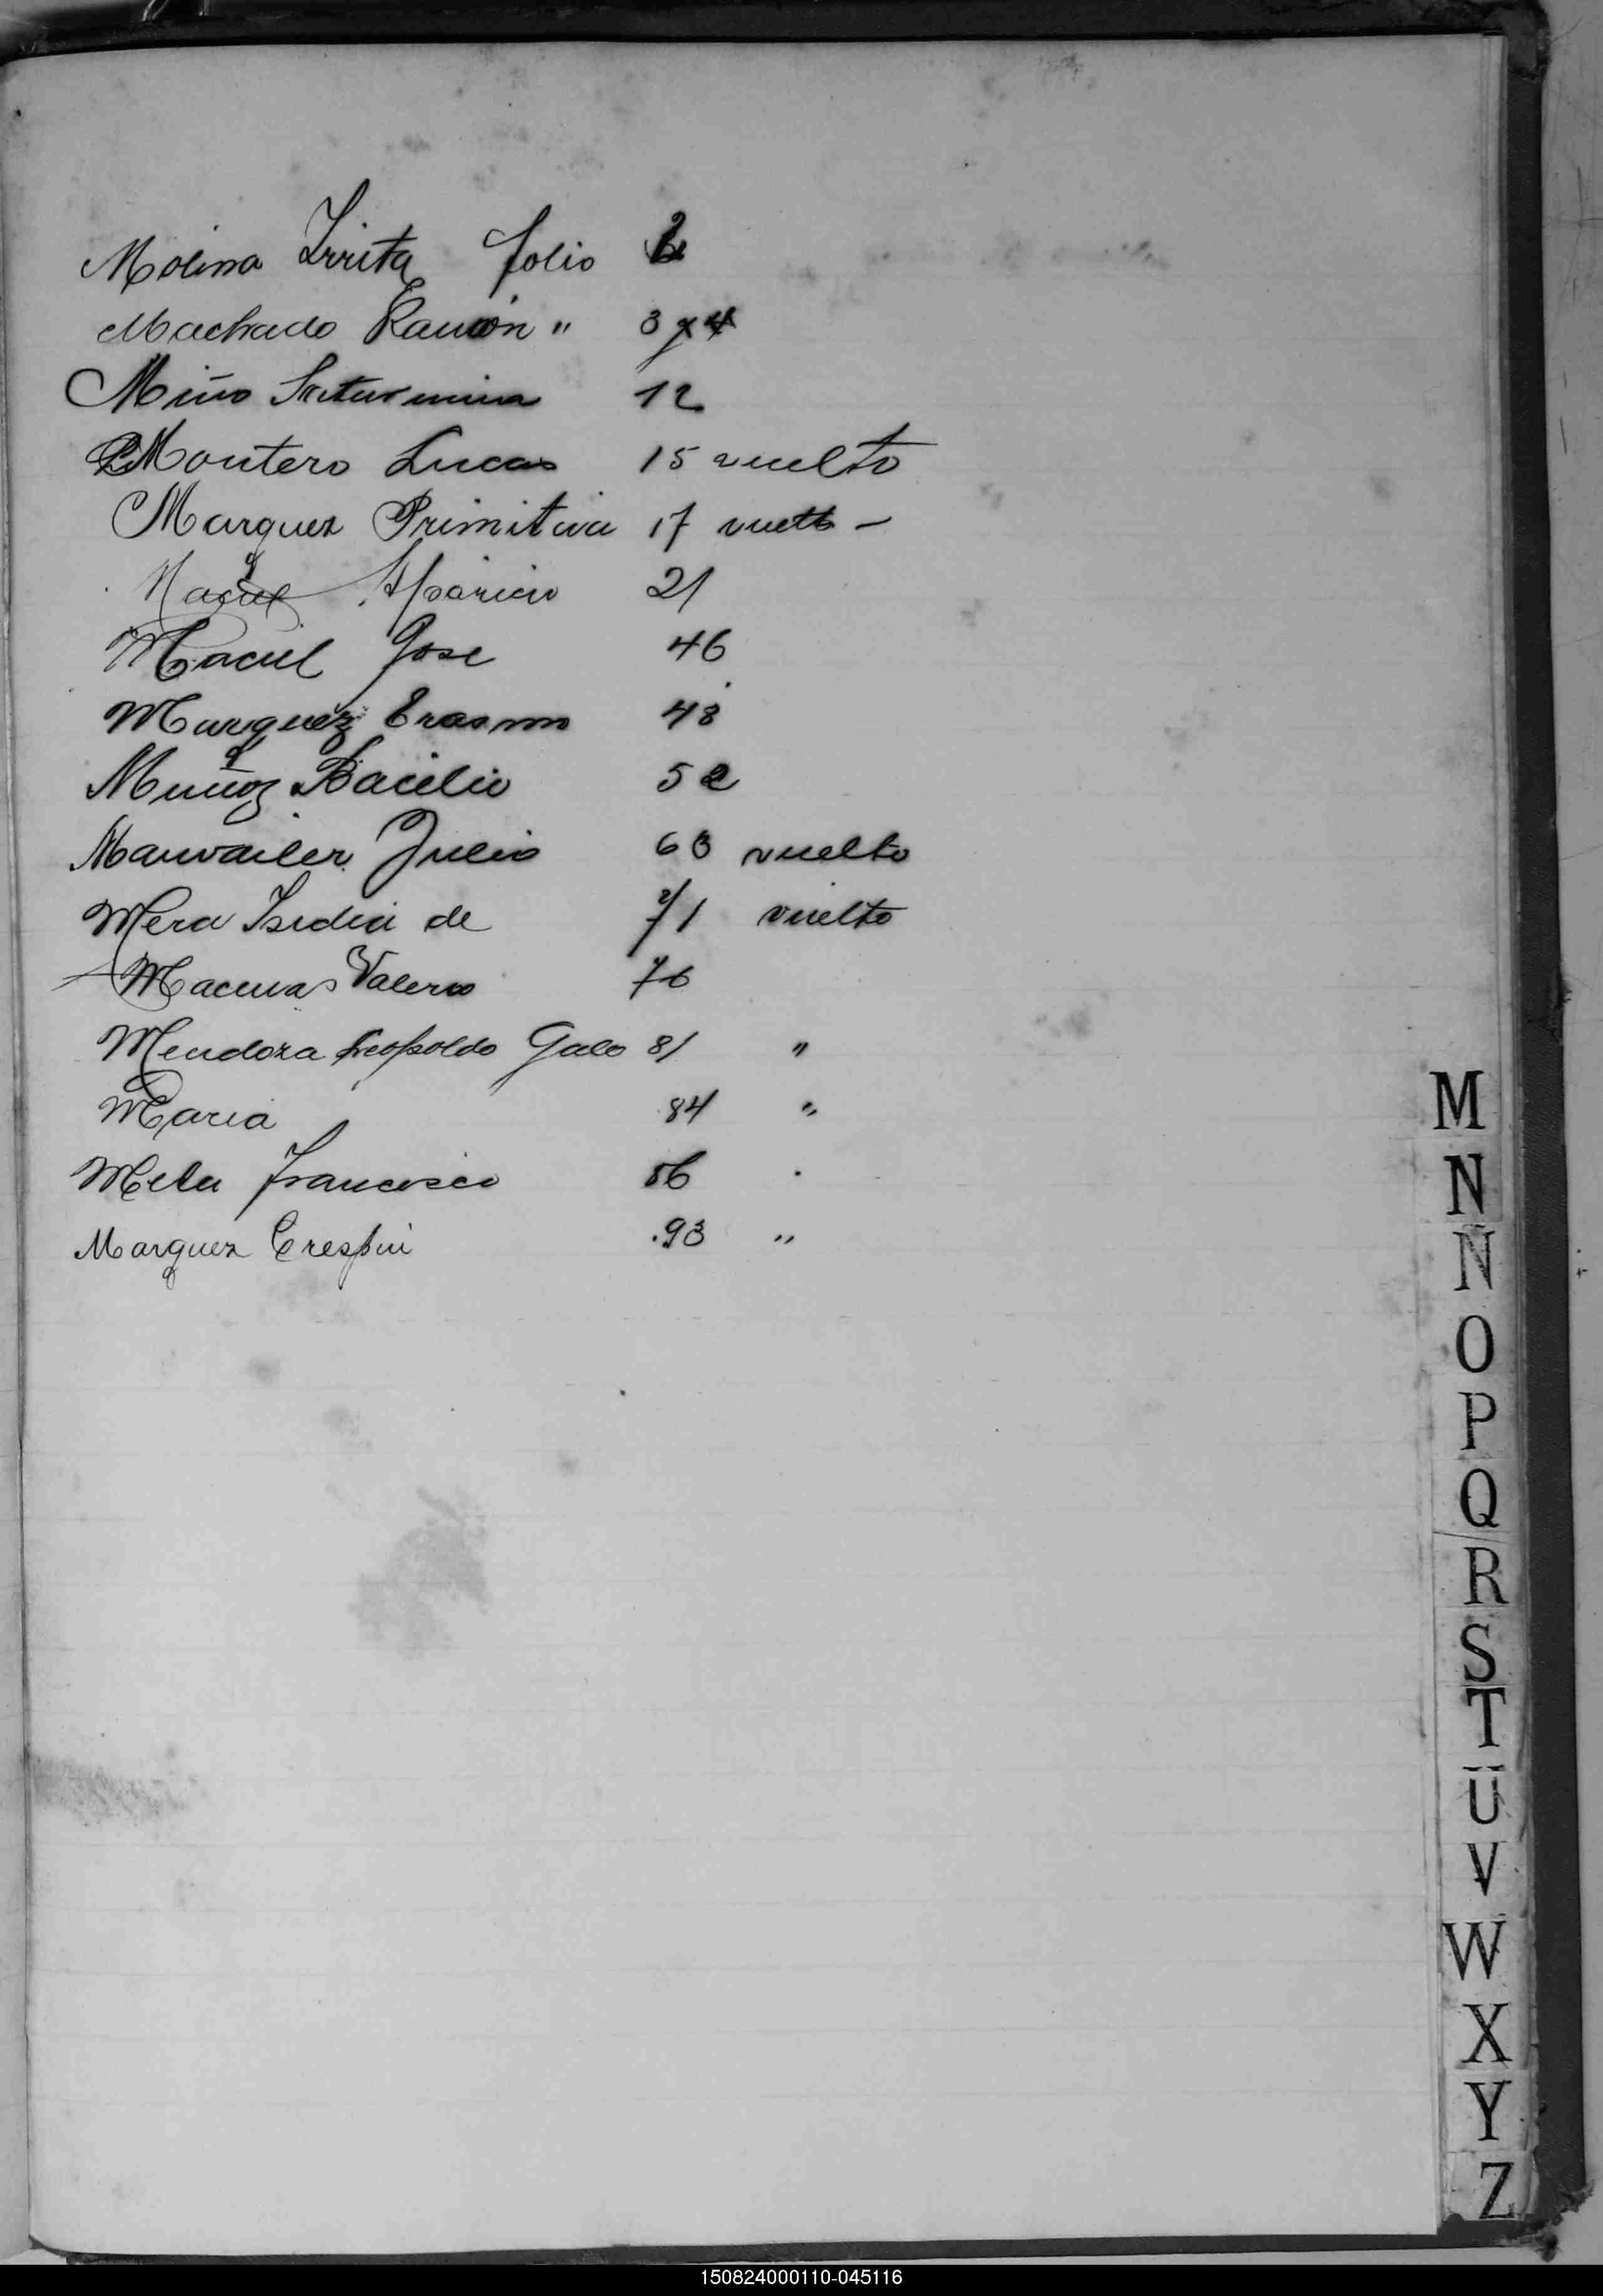 Molina folio
Machado Ramón " 3 y 4
Miño Saturnina 12
Montero Lucas 15 vuelto
Marquez Primitiva 17 vuelto -
Maciel Aparicio 21
Maciel Jose 46
Marquez Erasmo 48
Muñoz Bacilio 52
Julio 63 vuelto
Mera de 71 vuelto
Valerio 76
Mendoza Leopoldo Galo 81 "
Maria 84 "
Francisco 86
Marquez Crespin 93 "
M
N
N
O
P
Q
R
S
T
U
V
W
X
Y
Z
150824000110-045116